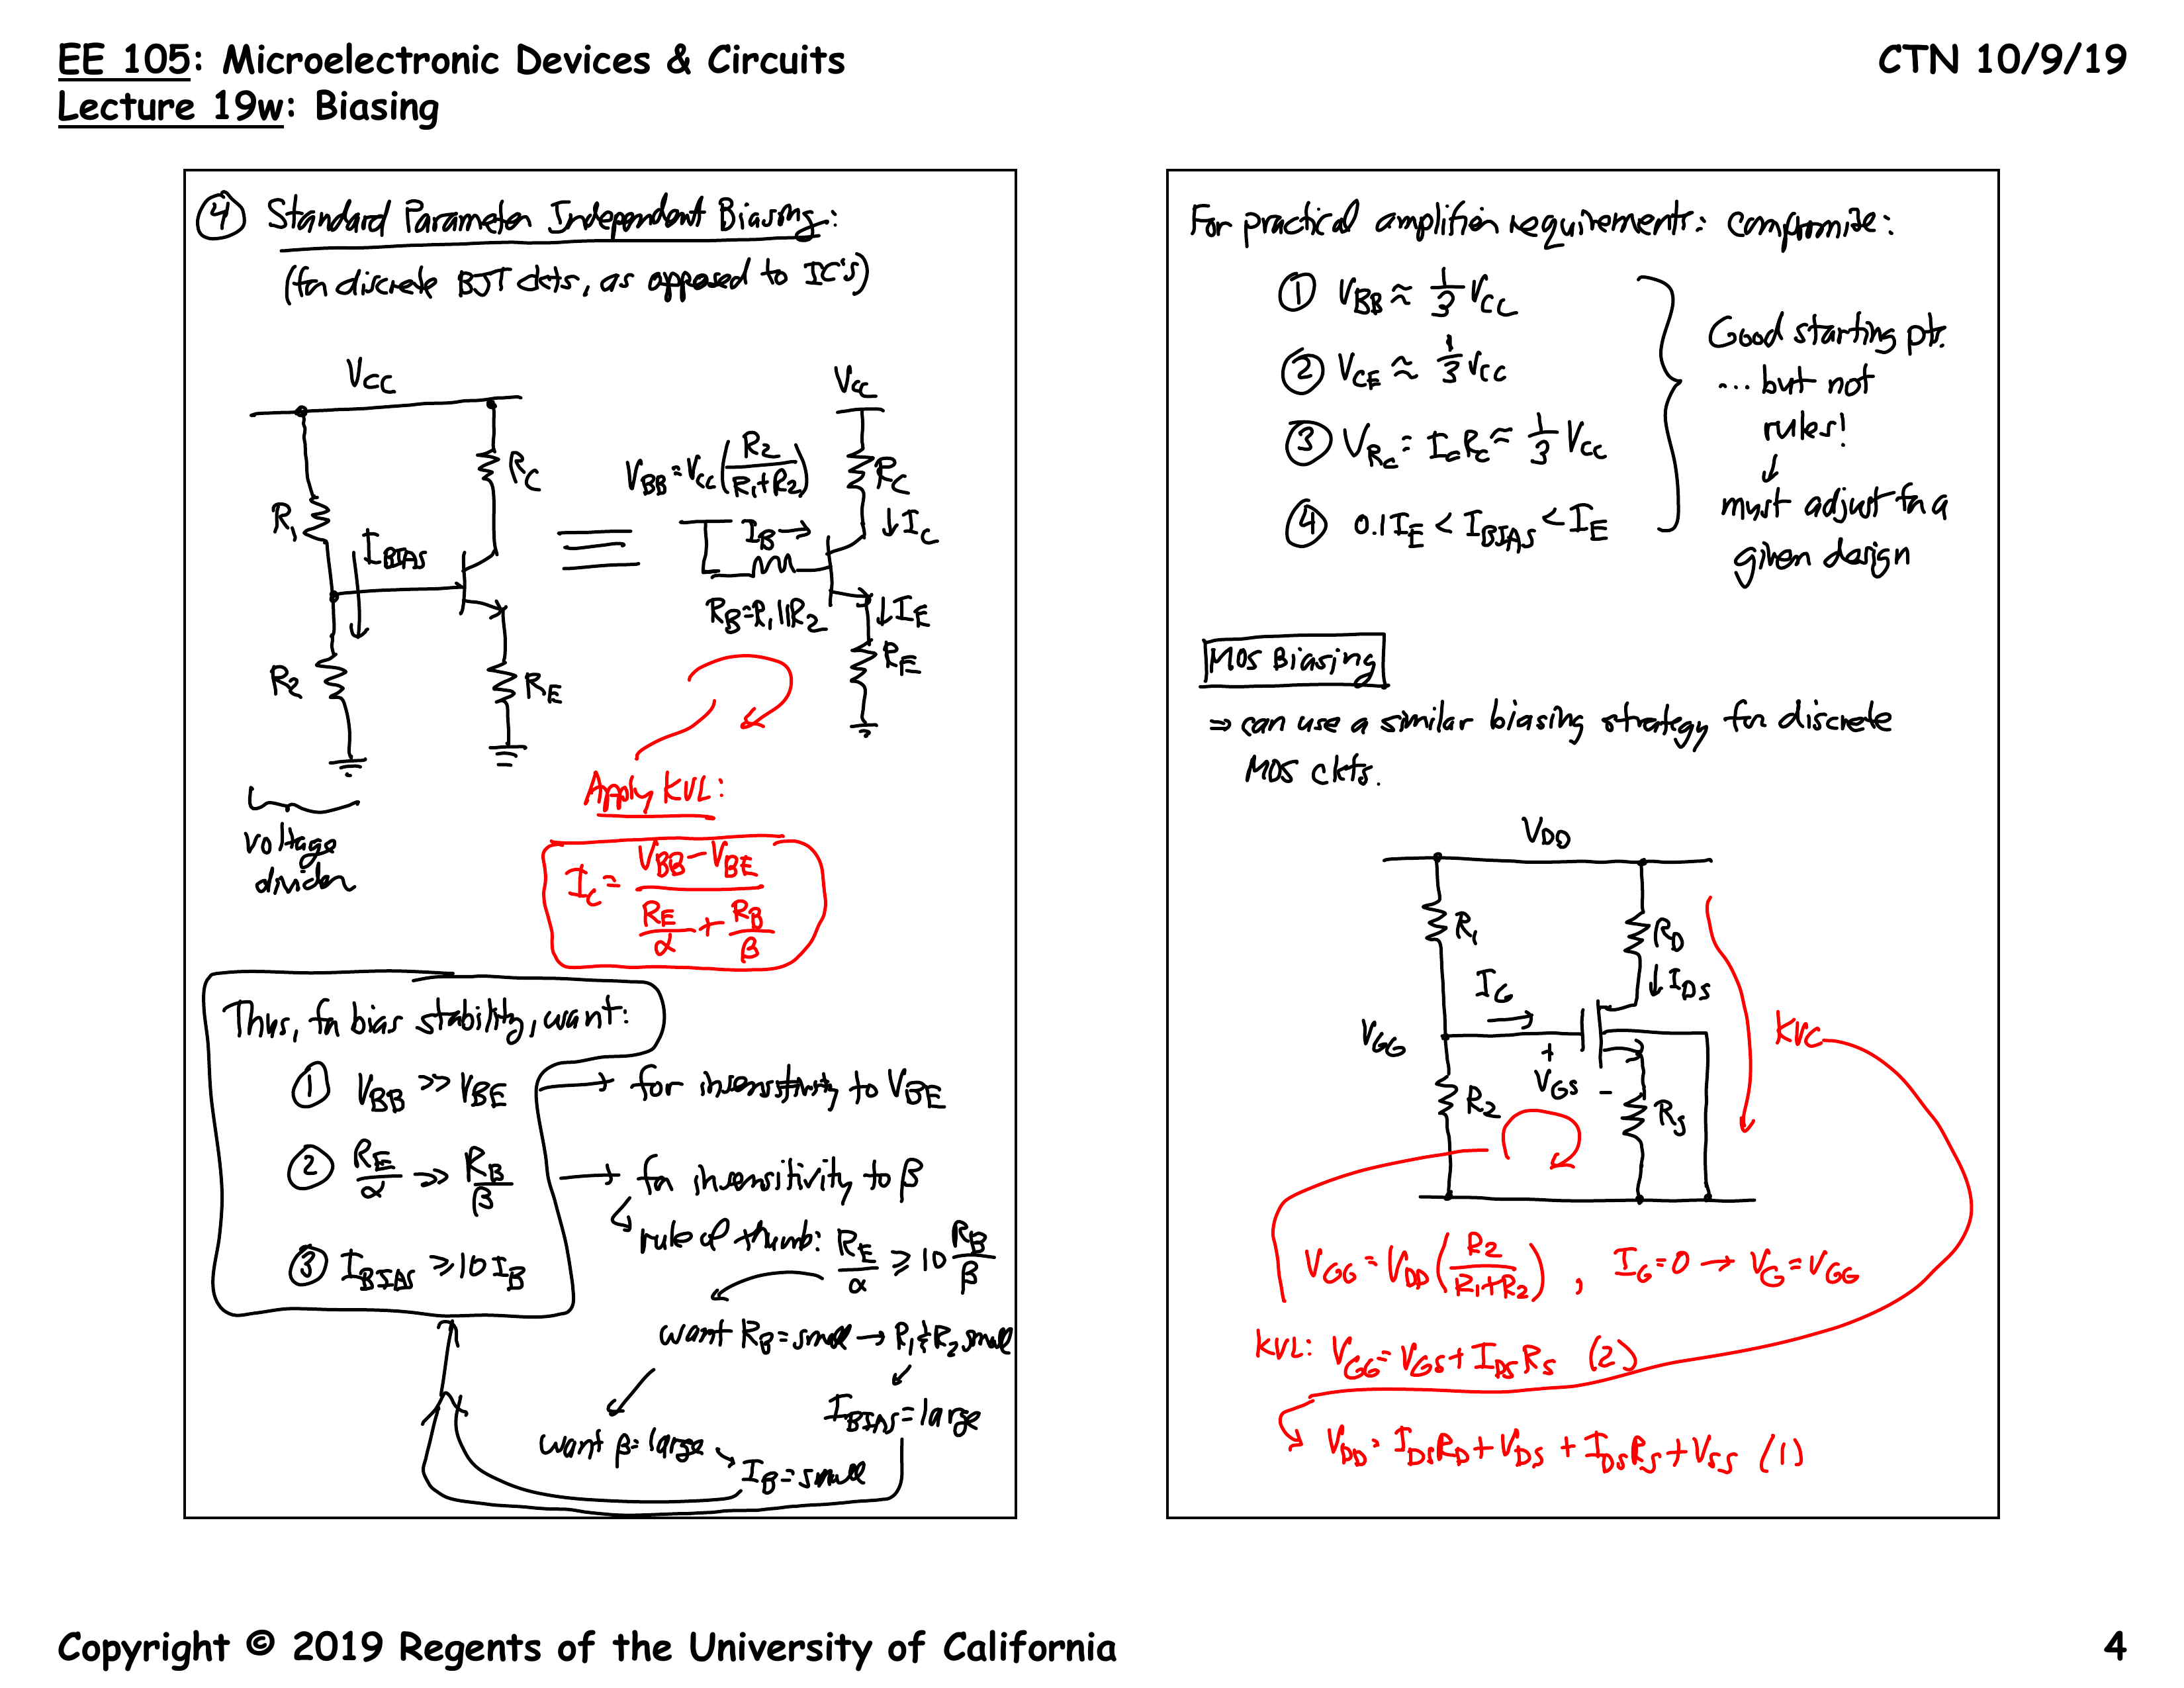 EE 105: Microelectronic Devices & Circuits
CTN 10/9/19
Lecture 19w: Biasing
④ Standard Parameter Independent Biasing:
(for discrete BJT ckts, as opposed to IC's)
V_CC
R_1
R_C
I_BIAS
R_2
R_E
voltage
divider
V_CC
V_BB = V_CC (R_2 / (R_1+R_2))
R_C
I_B →
↓ I_C
R_B = R_1 || R_2
↓ I_E
R_E
Apply KVL:
I_C = (V_BB - V_BE) / (R_E/α + R_B/β)
Thus, for bias stability, want:
① V_BB >> V_BE → for insensitivity to V_BE
② R_E/α >> R_B/β → for insensitivity to β
rule of thumb: R_E/α ≥ 10 R_B/β
③ I_BIAS ≥ 10 I_B
want R_B = small → R_1 & R_2 small
I_BIAS = large
want β = large
I_B = small
For practical amplifier requirements: compromise:
① V_BB ≈ 1/3 V_CC
② V_CE ≈ 1/3 V_CC
③ V_RC = I_C R_C ≈ 1/3 V_CC
④ 0.1 I_E < I_BIAS < I_E
Good starting pt.
... but not
rules!
↓
must adjust for a
given design
MOS Biasing
⇒ can use a similar biasing strategy for discrete
MOS ckts.
V_DD
R_1
R_D
I_G
↓ I_DS
V_GG
+
V_GS -
KVL
R_2
R_S
V_GG = V_DD (R_2 / (R_1+R_2)), I_G = 0 → V_G = V_GG
KVL: V_GG = V_GS + I_DS R_S (2)
V_DD = I_DS R_D + V_DS + I_DS R_S + V_SS (1)
Copyright © 2019 Regents of the University of California
4